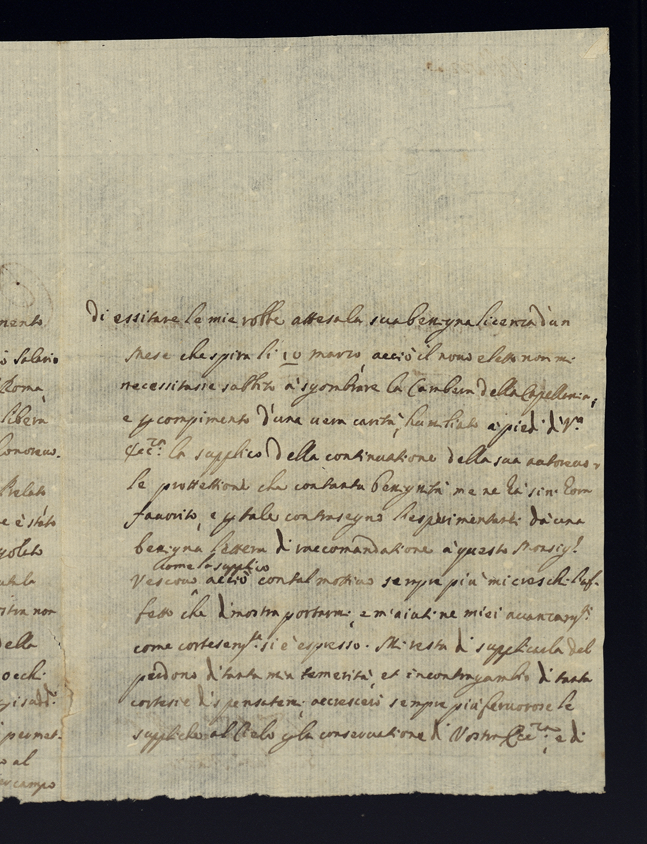 di essitare le mie robbe attesa la sua benigna licenza d'un
mese che spira li 10 marzo, acciò il novo eletto non mi
necessitasse subbito à sgombrare la Cambera della Capellania;
e p compimento d'una vera carità, humiliato a piedi di V.ra
Ecc.za la supplico della continuatione della sua autorevo-
le prottettione che con tanta benignità me ne hà sin hora
favorito, e p tale contrasegno d'esperimentarli dà una
benigna lettera di raccomandatione à questo Monsig.r
come la supplico
Vescovo acciò con tal mottivo sempre più mi creschi l'af-
fetto che dimostra portarmi, e m'aiuti ne miei avanzam.ti
come cortesem.te si è espresso. Mi resta di supplicarla del
perdono di tanta mia temerità, et in contragambio di tante
cortesie dispensatemi accrescerò sempre più fervorose le
suppliche al Cielo p la conservatione di Vostra Ecc.za, e di
nento
ò Salario
Roma
libera
Prelato
e è stato
della
occhi
permet-
o al
campo